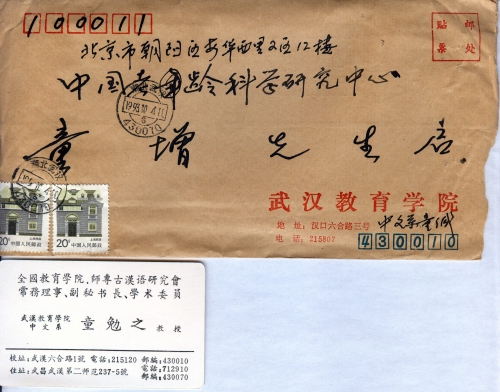 100011
贴 邮
票 处
北京市朝阳区安华西里2区12楼
中国老龄科学研究中心
童增先生启
湖北武汉
1993.10.4.11
6
430070
20分
中国人民邮政
上海民居
20分
中国人民邮政
上海民居
武汉教育学院
地 址：汉口六合路三号 中文系童缄
电 话：215807
430010
全國教育学院、師專古漢语研究會
常務理事、副秘书長、学术委員
武漢教育学院
中文系
童勉之 教授
校址：武漢六合路1號 電話：215120 郵編：430010
電話：712910
住址：武昌武漢第二师范237-5號 郵編：430070